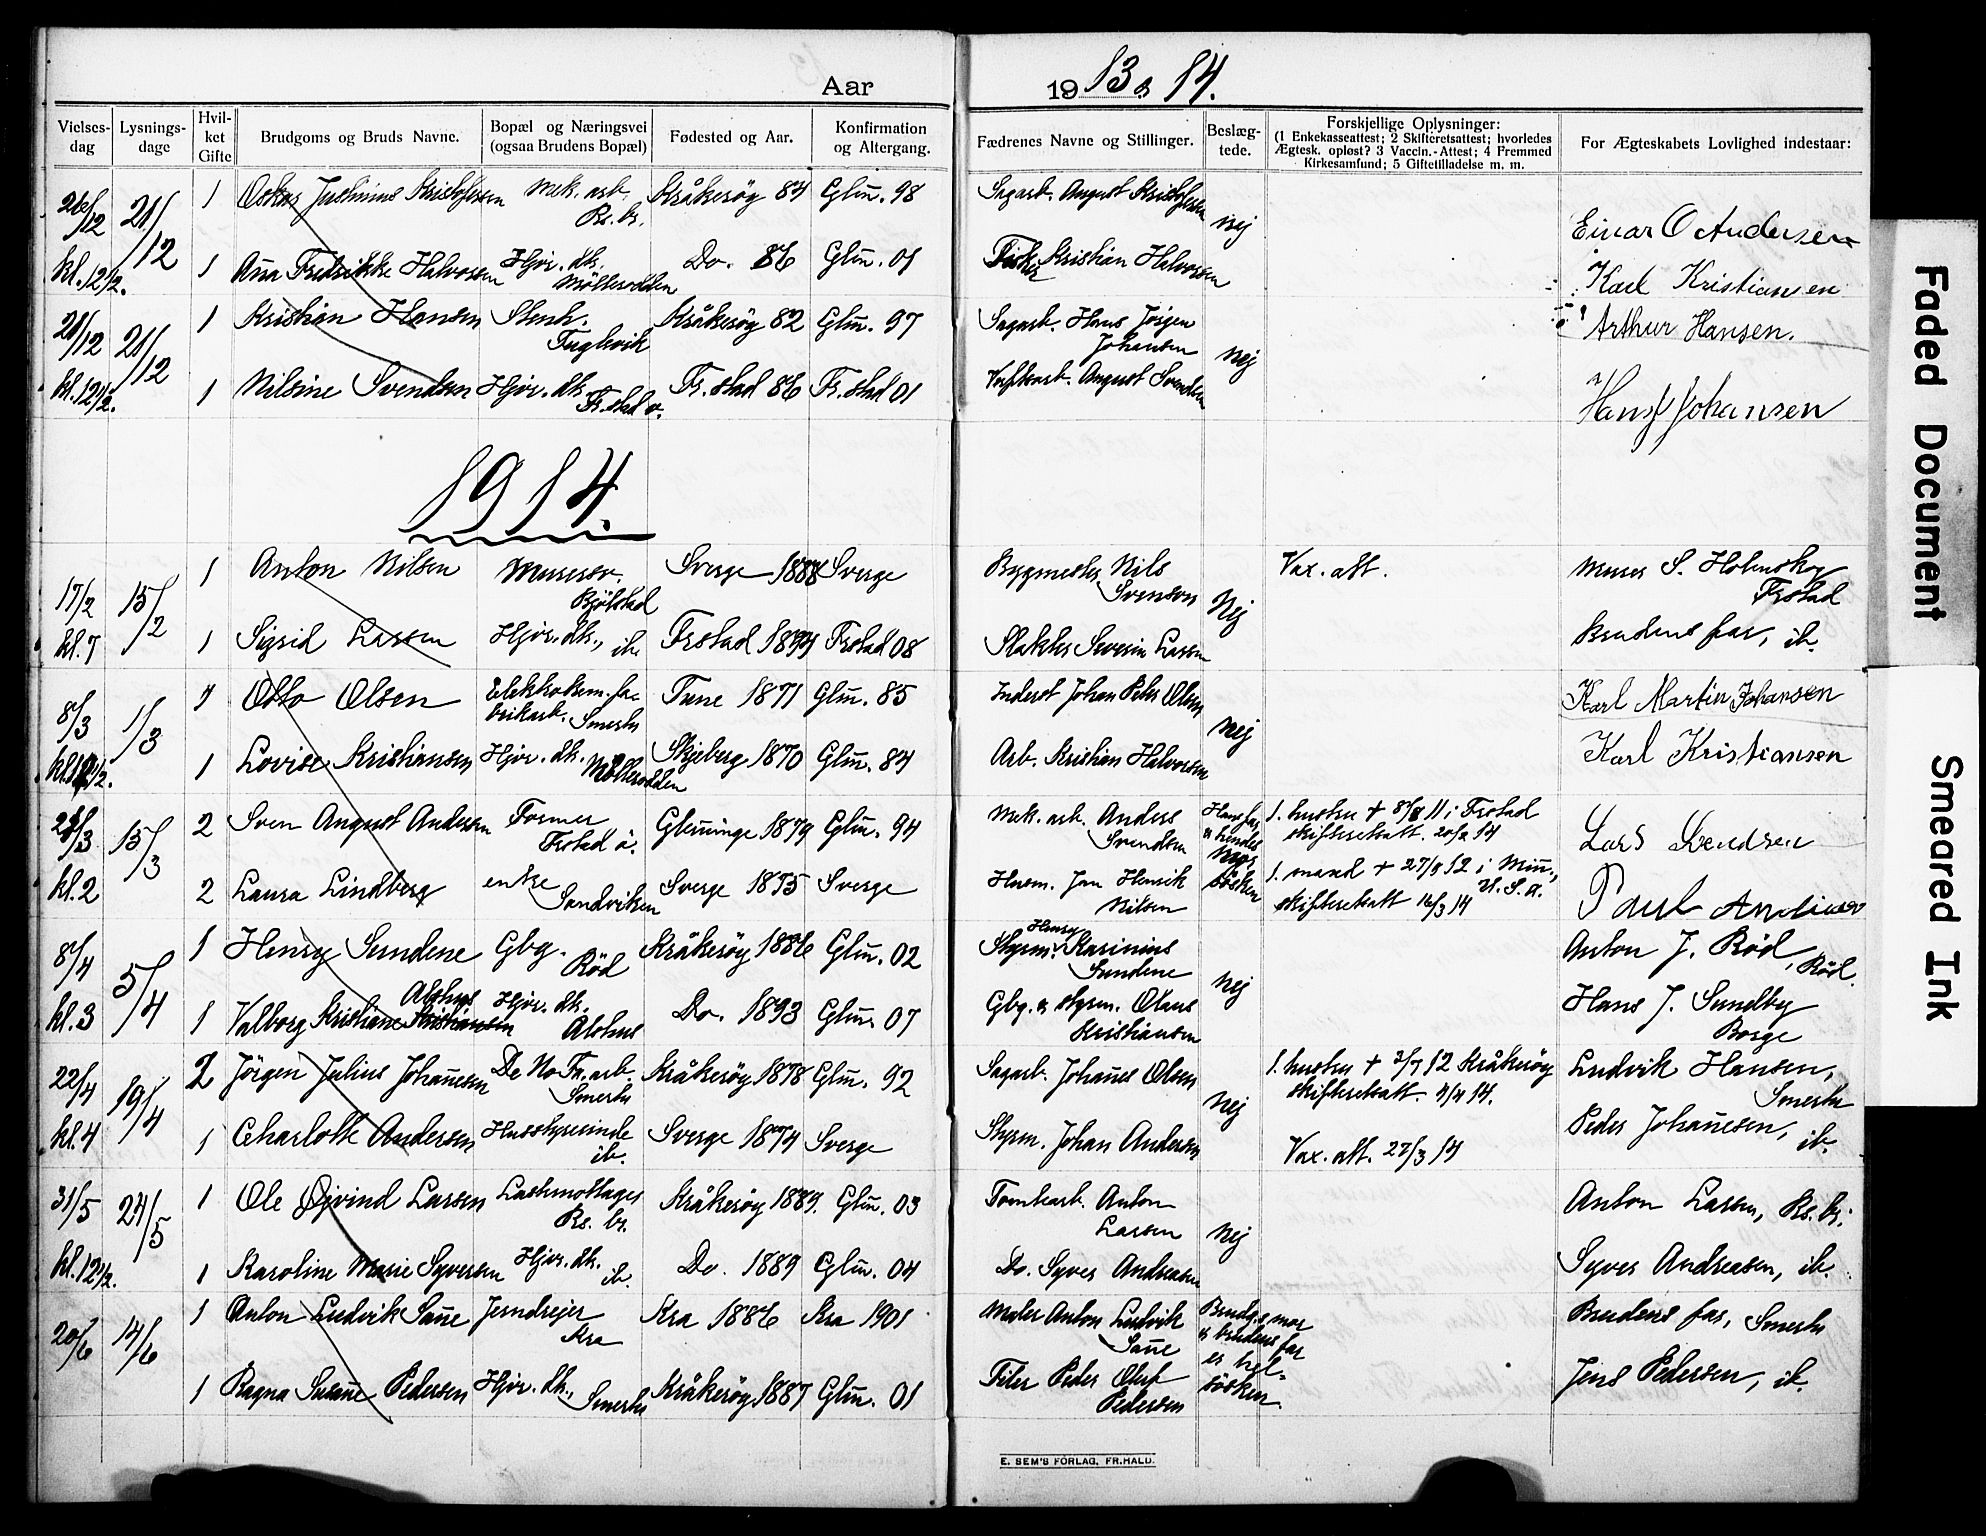 Aar
1913 & 14.
Vielses-dag
Lysnings-dage
Hvil-ket Gifte
Brudgoms og Bruds Navne.
Bopæl og Næringsvei (ogsaa Brudens Bopæl)
Fødested og Aar.
Konfirmation og Altergang.
Fædrenes Navne og Stillinger.
Beslæg-tede.
Forskjellige Oplysninger:
(1 Enkekasseattest; 2 Skifteretsattest; hvorledes
Ægtesk. opløst? 3 Vaccin.-Attest; 4 Fremmed
Kirkesamfund; 5 Giftetilladelse m. m.
For Ægteskabets Lovlighed indestaar:
26/12 21/12 1 Oskar Justinius Kristofersen Mek. arb. Kråkerøy 84 Glm. 98 Sagarb. August Kristofersen nej Einar O Andersen
kl. 12½. 1 Ana Fredrikke Halvorsen Hjpr. dk. Do. 86 Glm. 01 Kristian Halvorsen Karl Kristiansen
21/12 21/12 1 Kristian Hansen Stenh. Kråkerøy 82 Glm. 97 Sagarb. Hans Jörgen Johansen nej Arthur Hansen.
kl. 12½. 1 Nilsine Svendsen Hjpr. dk. Fr.stad ø. Fr.stad 86 Fr.stad 01 August Svendsen Hans Johansen
1914.
17/2 15/2 1 Anton Nilsen Murersv. Bjölstad Sverge 1888 Sverge Bygmester Nils Svenson Nej Vax. att. Murer S. Holmskog Frstad
kl. 7 1 Sigrid Larsen Hjpr. dk., ib. Frstad 1894 Frstad 08 Slakter Severin Larsen Brudens far, ib.
8/3 1/3 1 Otto Olsen Elektrokem. fabrikarb. Smertu Tune 1871 Glm. 85 Inderst Johan Peter Olsen nej Karl Martin Johansen
1 Lovise Kristiansen Hjpr. dk. Möllerodden Skjeberg 1870 Glm. 84 Arb. Kristian Halvorsen Karl Kristiansen
15/3 2 Sven August Andersen Former Frstad ö. Glemminge 1879 Glm. 94 Mek. arb. Anders Svendsen 1. hustru + 8/8 11 i Frstad skifteretsatt. 20/2 14 Lars Svendsen
kl. 2 2 Laura Lindberg enke Sandviken Sverge 1875 Sverge Husm. Jan Henrik Nilsen søsken 1. mand + 27/9 12 i Min., U. S. A. skifteretsatt 16/3 14 Paul
8/4 5/4 1 Henry Sundene Gbg. Röd Kråkerøy 1886 Glm. 02 Styrm. Henry Karinius Sundene nej Anton J. Röd, Röd.
kl. 3 1 Valborg Kristiane Alshus Hjpr. dk. Alshus Do. 1893 Glm. 07 Gbg. & styrm. Olaus Kristiansen Hans J. Sundby Borge
22/4 19/4 2 Jörgen Julius Johanesen De No Fa. arb. Smertu Kråkerøy 1878 Glm. 92 Sagarb. Johanes Olsen nej 1. hustru + 3/7 12 Kråkerøy skifteretsatt. 4/4 14. Ludvik Hansen, Smertu
kl. 4 1 Charlotte Andersen Husstyrerinde ib. Sverge 1874 Sverge Styrm. Johan Andersen Vax. att. 27/3 14 Peder Johanesen, ib.
31/5 24/5 1 Ole Øjvind Larsen Lastmottager Rs. br. Kråkerøy 1889. Glm. 03 Tomtearb. Anton Larsen nej Anton Larsen, Rs. br.
kl. 12½. 1 Karoline Marie Syversen Hjpr. dk. ib. Do. 1889 Glm. 04 Do. Syver Andreasen Syver Andreasen, ib.
20/6 14/6 1 Anton Ludvik Sane Jerndrejer Kra Kra 1886 Kra 1901 Maler Anton Ludvik Sane Brudg.s mor & brudens far er helsösken. Brudens far, Smertu
1 Ragna Susane Pedersen Hjpr. dk., Smertu Kråkerøy 1887 Glm. 01 Filer Peder Oluf Pedersen Jens Pedersen, ib.
E. SEM'S FORLAG, FR.HALD.
Faded Document
Smeared Ink